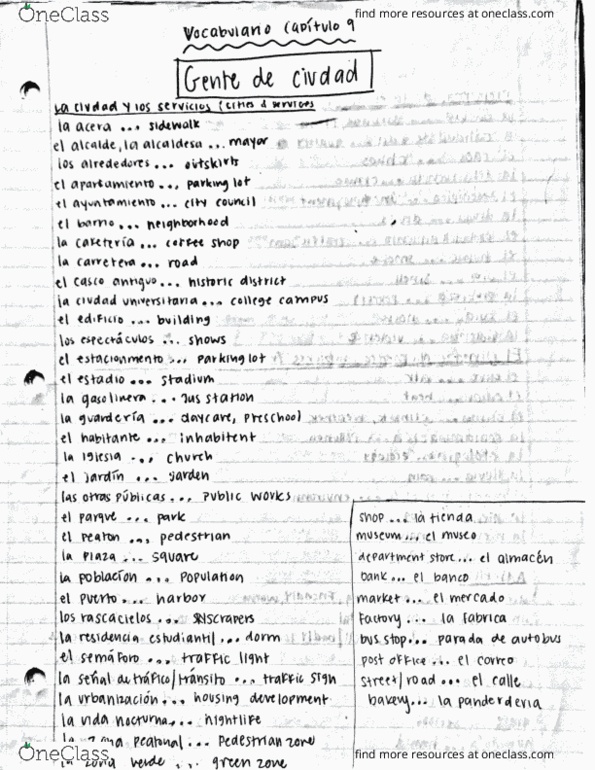 OneClass
find more resources at oneclass.com
Vocabulario Capítulo 9
Gente de ciudad
La ciudad y los servicios (cities & services
la acera ... sidewalk
el alcalde, la alcaldesa ... mayor
los alrededores ... outskirts
el aparcamiento ... parking lot
el ayuntamiento ... city council
el barrio ... neighborhood
la cafetería ... coffee shop
la carretera ... road
el casco antiguo ... historic district
la ciudad universitaria ... college campus
el edificio ... building
los espectáculos ... shows
el estacionmento ... parking lot
el estadio ... stadium
la gasolinera ... gas station
la guardería ... daycare, preschool
el habitante ... inhabitent
la iglesia ... church
el jardín ... garden
las obras públicas ... public works
el parque ... park
el peaton ... pedestrian
la plaza ... square
la población ... population
el puerto ... harbor
los rascacielos ... skyscrapers
la residencia estudiantil ... dorm
el semáforo ... traffic light
la señal de tráfico/tránsito ... traffic sign
la urbanización ... housing development
la vida nocturna ... nightlife
la zona peatonal ... pedestrian zone
la zona verde ... green zone
shop ... la tienda
museum ... el museo
department store ... el almacén
bank ... el banco
market ... el mercado
factory ... la fabrica
bus stop ... parada de autobus
post office ... el correo
street/road ... el calle
bakery ... la panderdería
OneClass
find more resources at oneclass.com